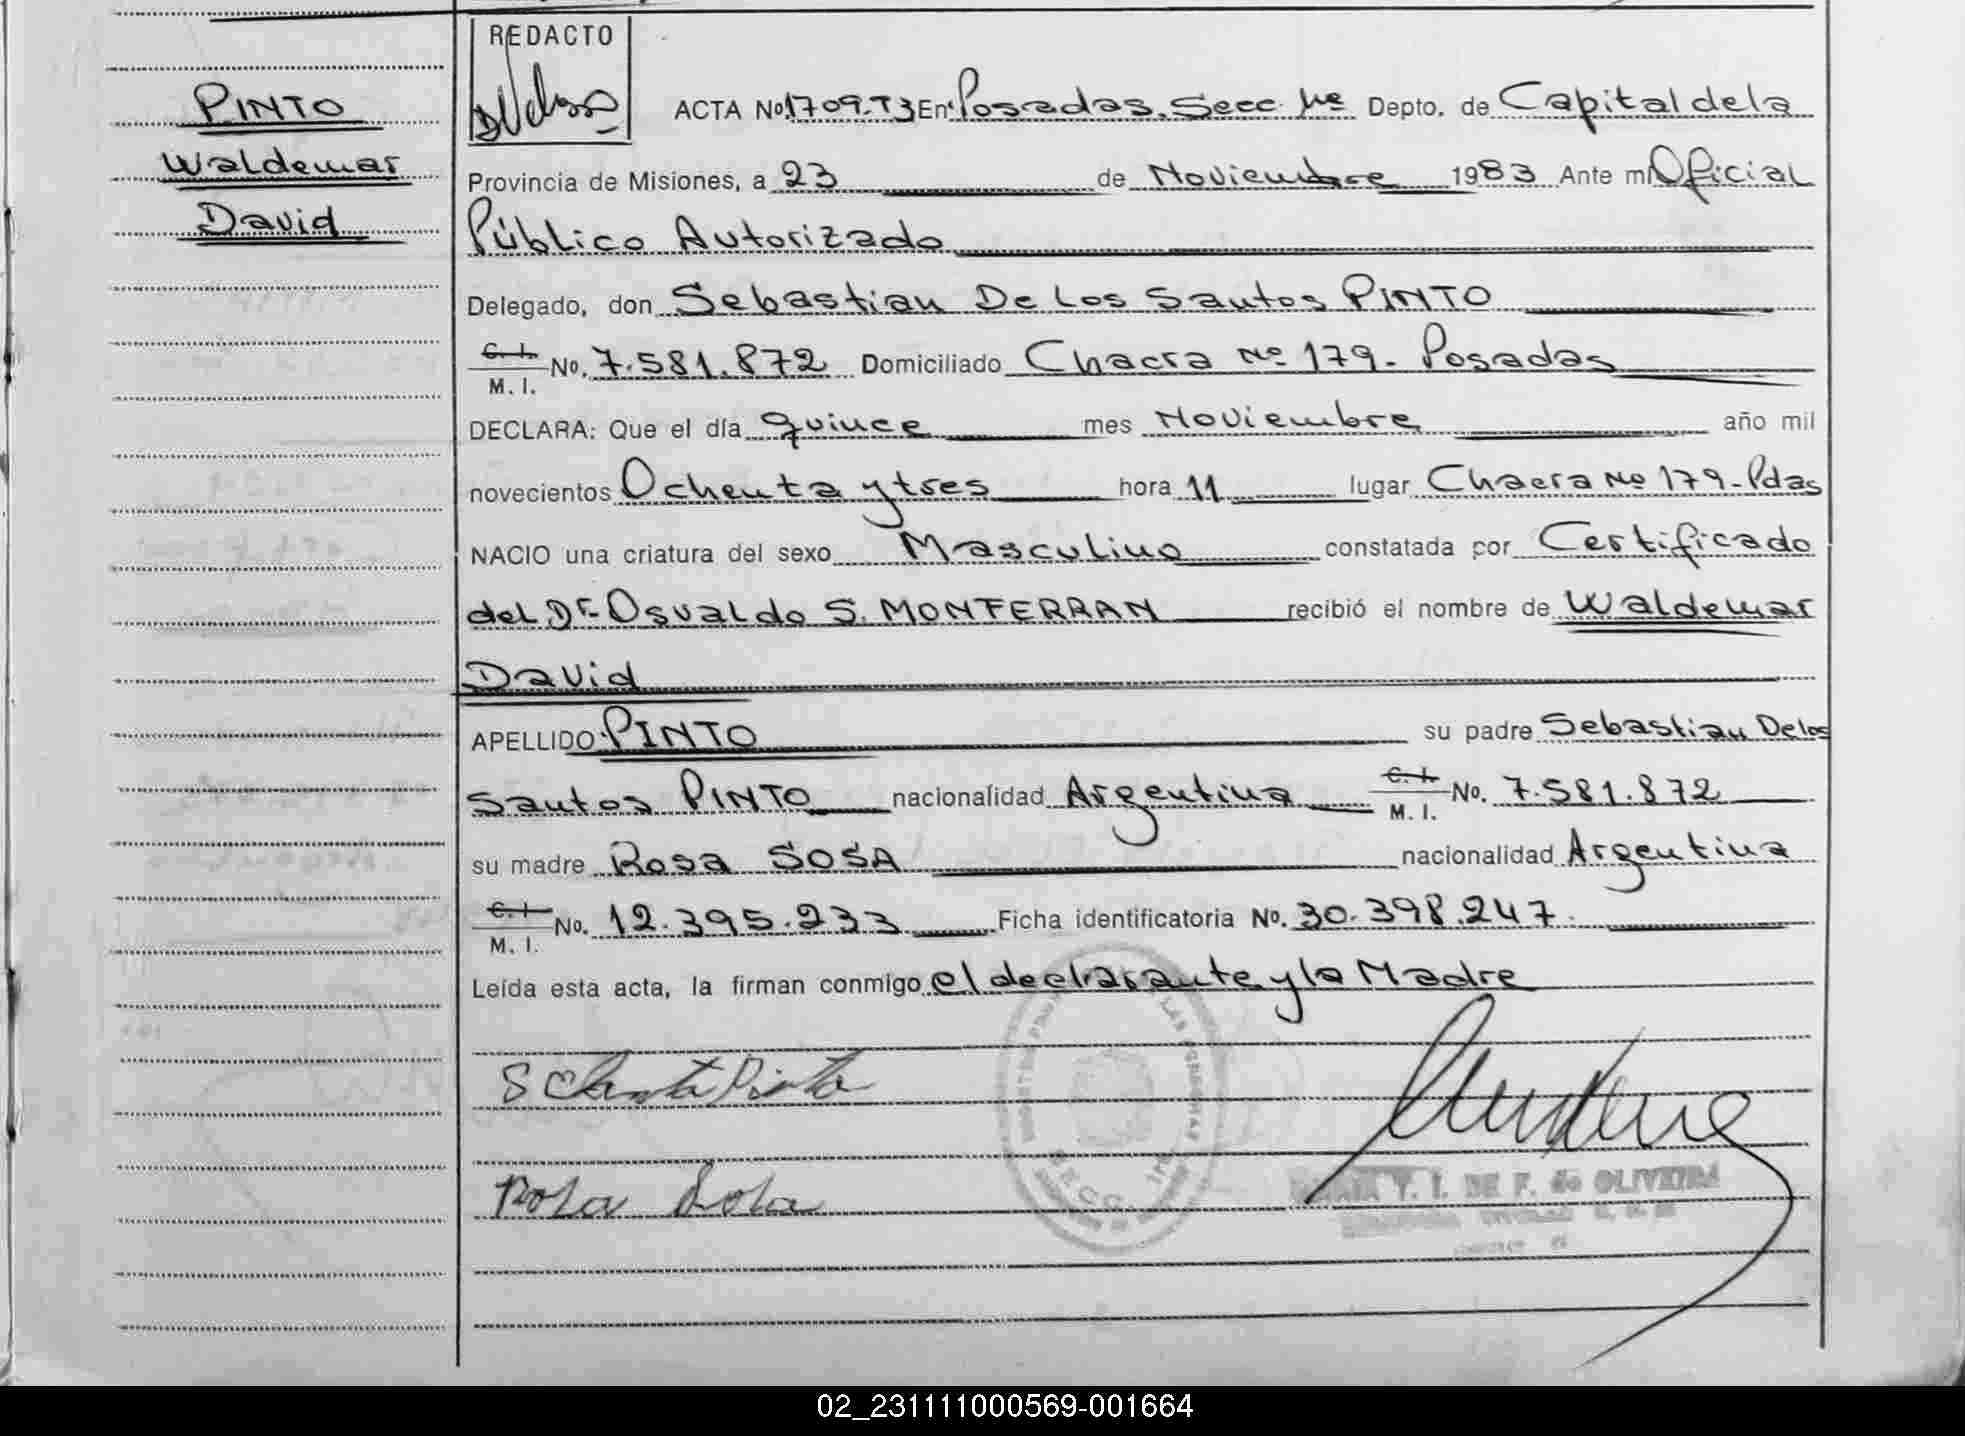 REDACTO
PINTO
Waldemar
David
ACTA No. 1709.T3 En Posadas. Secc. 11e Depto. de Capital de la
Provincia de Misiones, a 23 de Noviembre 1983 Ante mí Oficial
Público Autorizado
Delegado, don Sebastian De Los Santos PINTO
C. I.
M. I. No. 7.581.872 Domiciliado Chacra No 179- Posadas
DECLARA: Que el día quince mes Noviembre año mil
novecientos Ochenta y tres hora 11 lugar Chacra No 179-Pdas
NACIO una criatura del sexo Masculino constatada por Certificado
del Dr. Osvaldo S. MONFERRAN recibió el nombre de Waldemar
David
APELLIDO PINTO su padre Sebastian De los
Santos PINTO nacionalidad Argentina C. I. M. I. No. 7.581.872
su madre Rosa SOSA nacionalidad Argentina
C. I.
M. I. No. 12.395.233 Ficha identificatoria No. 30.398.247.
Leída esta acta, la firman conmigo el declarante y la Madre
Rosa Sosa
DE F. de OLIVEIRA
02_231111000569-001664